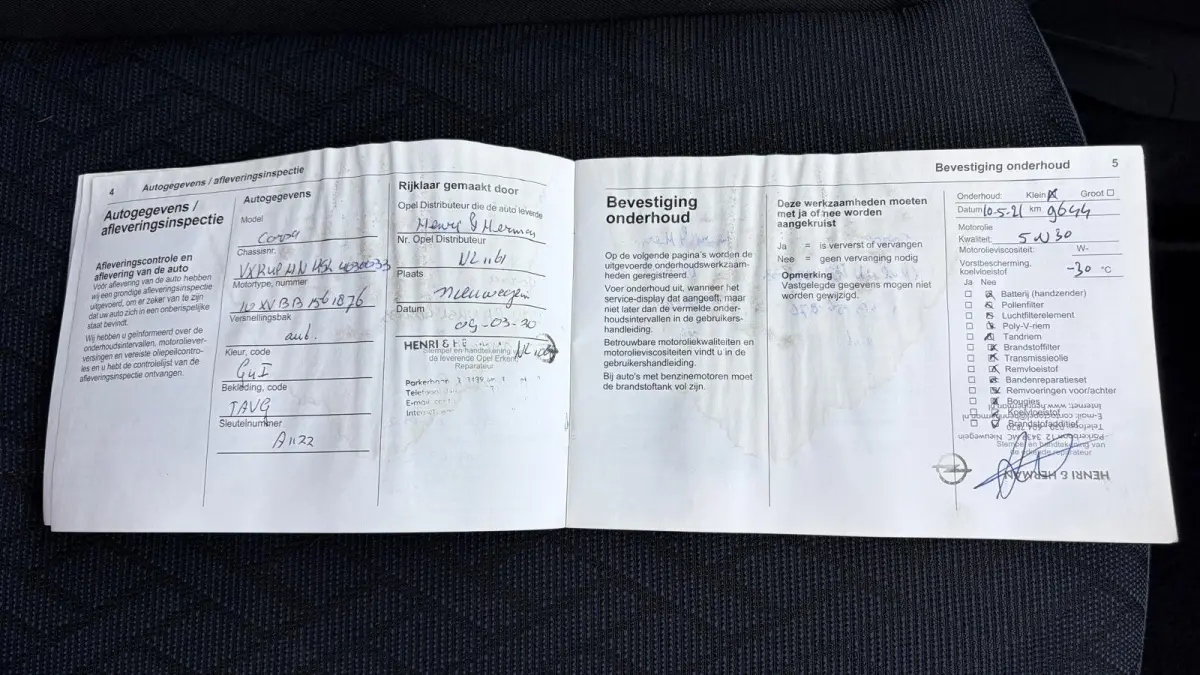 4 Autogegevens / afleveringsinspectie
Autogegevens /
afleveringsinspectie
Afleveringscontrole en
aflevering van de auto
Vóór aflevering van de auto hebben
wij een grondige afleveringsinspectie
uitgevoerd, om er zeker van te zijn
dat uw auto zich in een onberispelijke
staat bevindt.
Wij hebben u geïnformeerd over de
onderhoudsintervallen, motoroliever-
versingen en vereiste oliepeilcontro-
les en u hebt de controlelijst van de
afleveringsinspectie ontvangen.
Autogegevens
Model
Corsa
Chassisnr.
Motortype, nummer
Versnellingsbak
aut.
Kleur, code
Bekleding, code
TAVG
Sleutelnummer
A1122
Rijklaar gemaakt door
Opel Distributeur die de auto leverde
Henri & Herman
Nr. Opel Distributeur
NL1161
Plaats
Nieuwegein
Datum
09-03-20
HENRI &
Stempel en handtekening v
de leverende Opel Erken
Reparateur
Telefoon
E-mail
Bevestiging onderhoud 5
Bevestiging
onderhoud
Op de volgende pagina's worden de
uitgevoerde onderhoudswerkzaam-
heden geregistreerd.
Voer onderhoud uit, wanneer het
service-display dat aangeeft, maar
niet later dan de vermelde onder-
houdsintervallen in de gebruikers-
handleiding.
Betrouwbare motoroliekwaliteiten en
motorolieviscositeiten vindt u in de
gebruikershandleiding.
Bij auto's met benzinemotoren moet
de brandstoftank vol zijn.
Deze werkzaamheden moeten
met ja of nee worden
aangekruist
Ja = is ververst of vervangen
Nee = geen vervanging nodig
Opmerking
Vastgelegde gegevens mogen niet
worden gewijzigd.
Onderhoud: Klein Groot
Datum 10-5-21 km 9644
Motorolie
Kwaliteit: 5W30
Motorolieviscositeit: W-
Vorstbescherming,
koelvloeistof -30 °C
Ja Nee
Batterij (handzender)
Pollenfilter
Luchtfilterelement
Poly-V-riem
Tandriem
Brandstoffilter
Transmissieolie
Remvloeistof
Bandenreparatieset
Remvoeringen voor/achter
Bougies
Koelvloeistof
Brandstofadditief
Stempel en handtekening van
de erkende reparateur
HENRI & HERMAN
Parkerbaan 12 3439 MC Nieuwegein